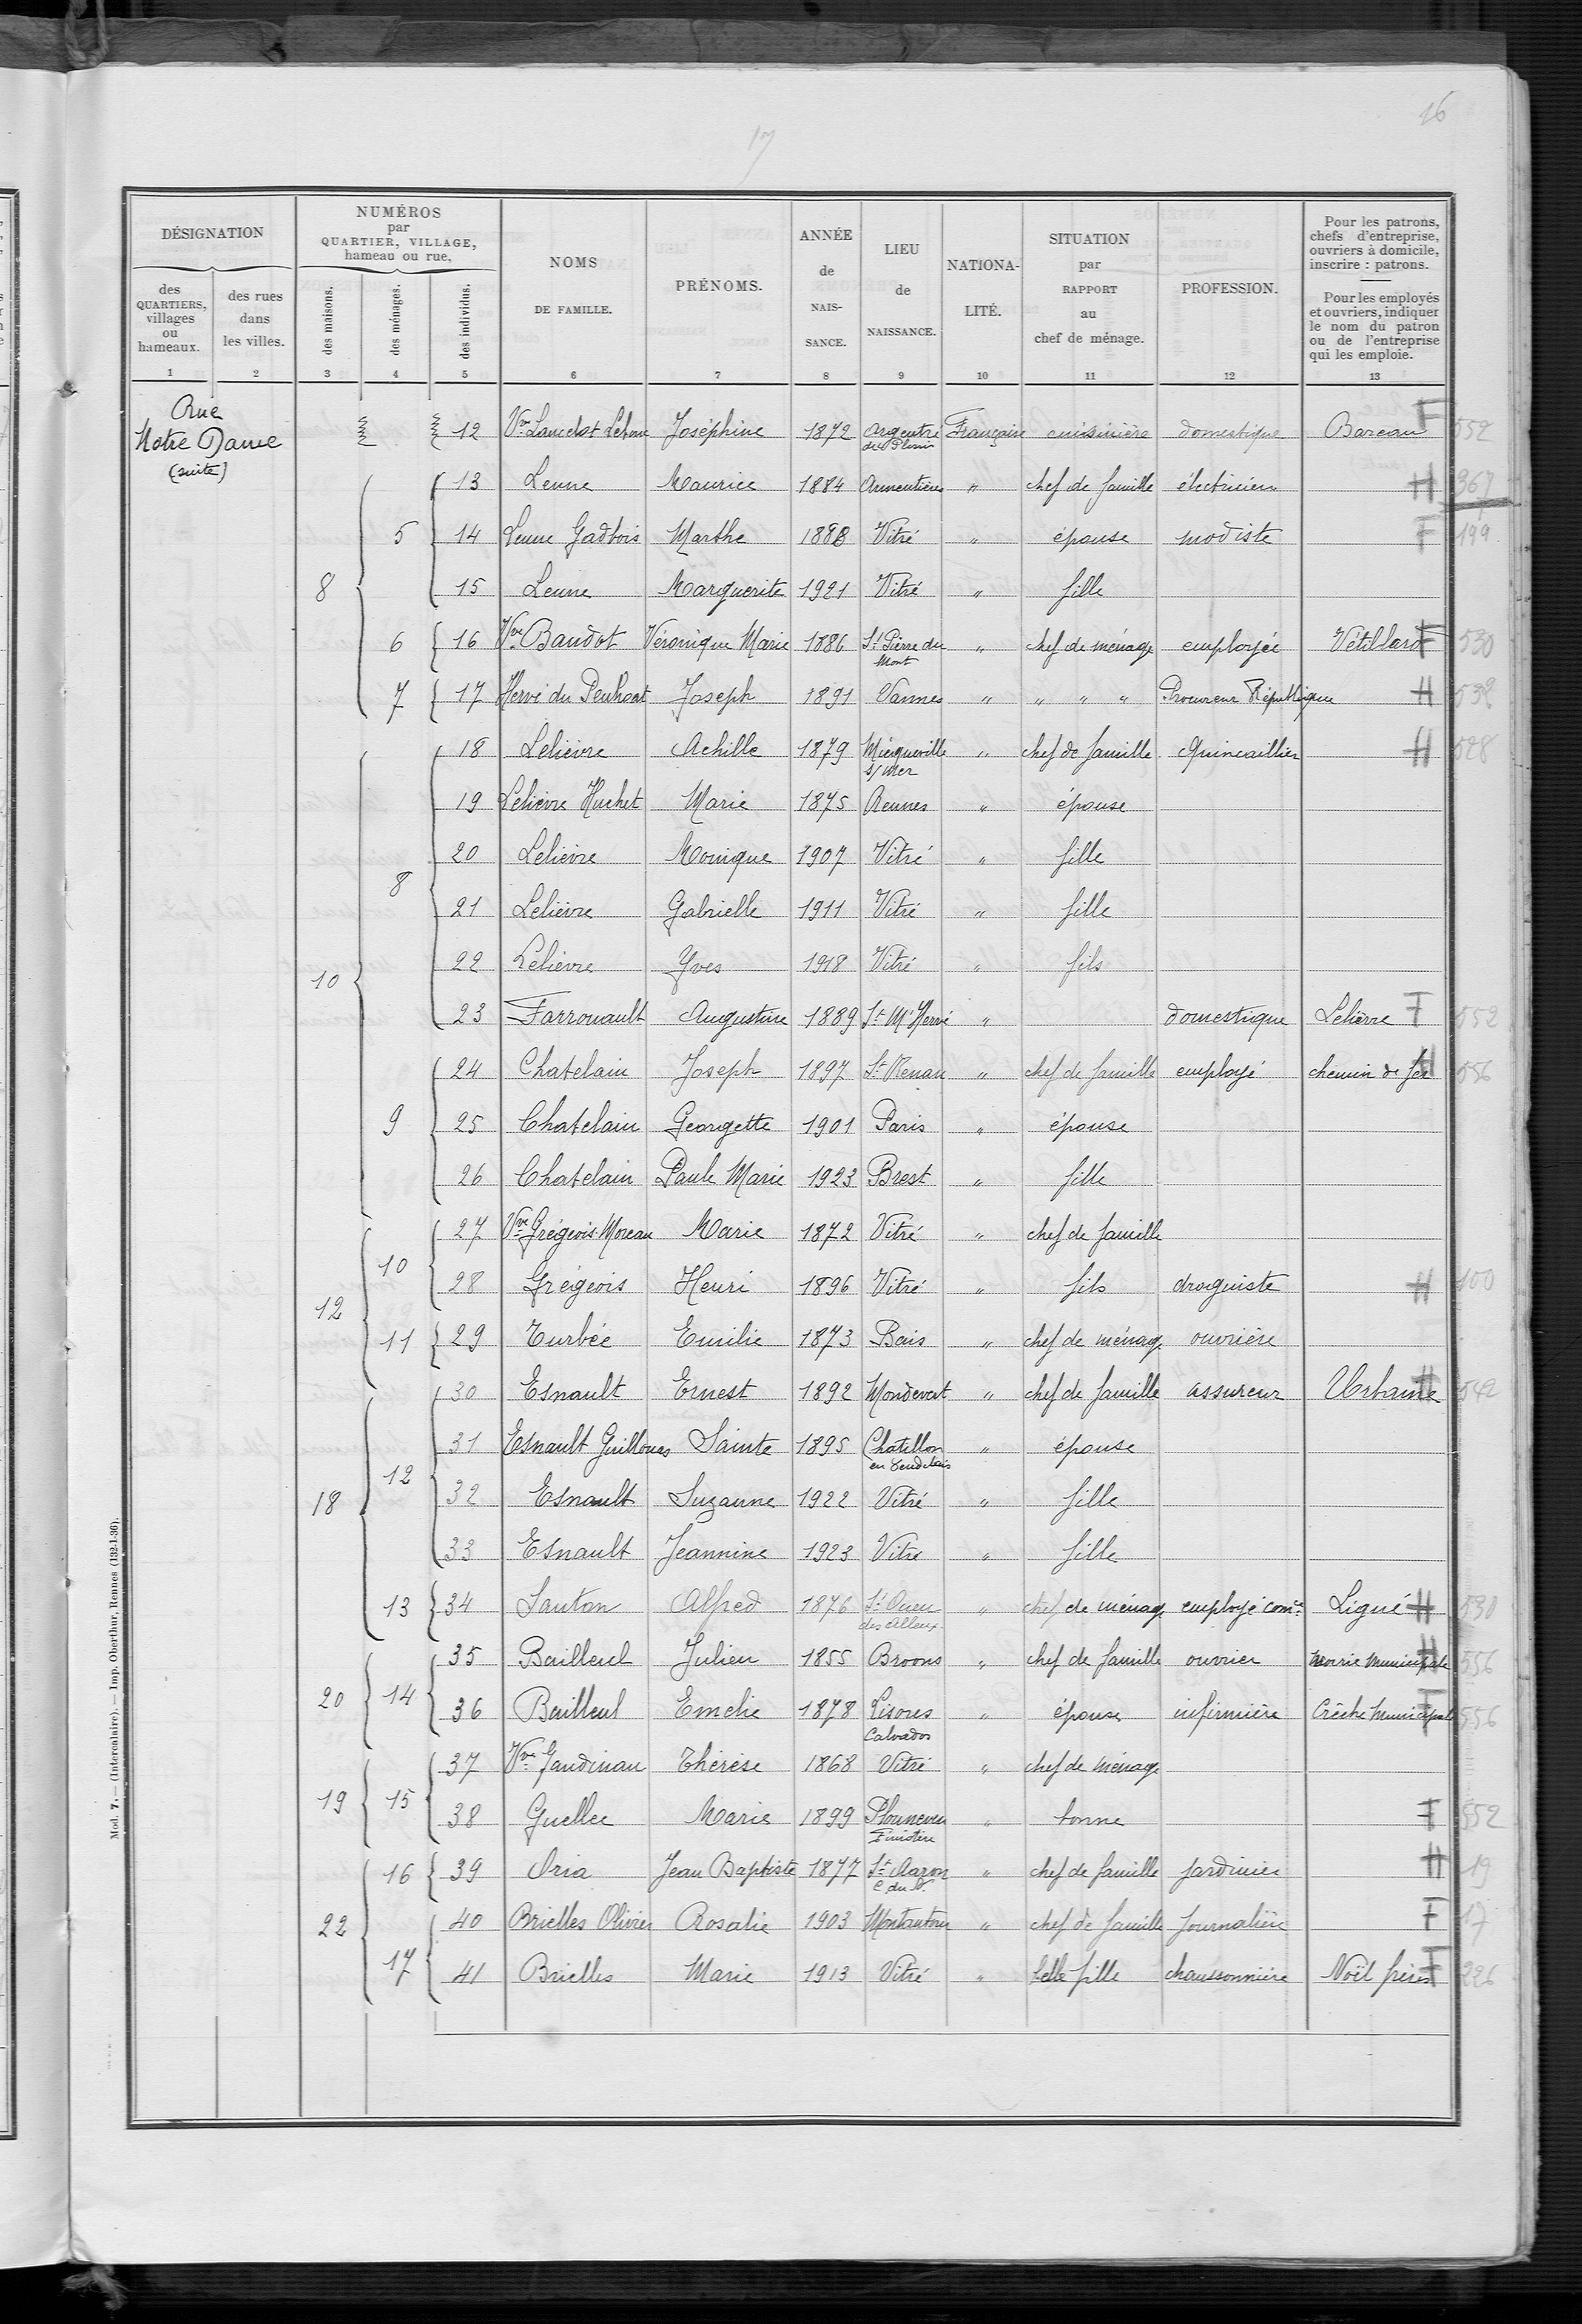 16
17
DÉSIGNATION
des QUARTIERS, villages ou hameaux.
des rues dans les villes.
NUMÉROS par QUARTIER, VILLAGE, hameau ou rue.
des maisons.
des ménages.
des individus.
NOMS DE FAMILLE.
PRÉNOMS.
ANNÉE de NAIS-SANCE.
LIEU de NAISSANCE.
NATIONA-LITÉ.
SITUATION par RAPPORT au chef de ménage.
PROFESSION.
Pour les patrons, chefs d'entreprise, ouvriers à domicile, inscrire : patrons.
Pour les employés et ouvriers, indiquer le nom du patron ou de l'entreprise qui les emploie.
1 2 3 4 5 6 7 8 9 10 11 12 13
Rue Notre Dame (suite)
12 Vve Lancelot Joséphine 1872 Argentré du Plessis Française cuisinière domestique Bareau F 552
13 Leune Maurice 1884 Armentières " chef de famille électricien H 367
5 14 Leune Gadbois Marthe 1888 Vitré " épouse modiste F 199
8 15 Leune Marguerite 1921 Vitré " fille
6 16 Vve Baudot Véronique Marie 1886 St Pierre du Mont " chef de ménage employée Vétillard F 530
7 17 Hervé du Penhoat Joseph 1891 Vannes " " " " Procureur République H 532
18 Lelièvre Achille 1879 s/mer " chef de famille Quincaillier H 528
19 Lelièvre Huchet Marie 1875 Rennes " épouse
20 Lelièvre Monique 1907 Vitré " fille
8 21 Lelièvre Gabrielle 1911 Vitré " fille
10 22 Lelièvre Yves 1918 Vitré " fils
23 Farrouault Augustine 1889 St M'Hervé " domestique Lelièvre F 552
24 Chatelain Joseph 1897 St Renan " chef de famille employé chemin de fer H 556
9 25 Chatelain Georgette 1901 Paris " épouse
26 Chatelain Paule Marie 1923 Brest " fille
27 Vve Grégeois Moreau Marie 1872 Vitré " chef de famille
10 28 Grégeois Henri 1896 Vitré " fils droguiste H 100
12 11 29 Turbée Emilie 1873 Bais " chef de ménage ouvrière
30 Esnault Ernest 1892 Mondevert " chef de famille assureur Urbaine H 542
31 Esnault Guillouas Sainte 1895 Chatillon en Vendelais " épouse
18 12 32 Esnault Suzanne 1922 Vitré " fille
33 Esnault Jeannine 1923 Vitré " fille
13 34 Santon Alfred 1876 St Ouen des Alleux " chef de ménage employé comce Ligué H 530
35 Bailleul Julien 1855 Broons " chef de famille ouvrier Mairie Municipale H 556
20 14 36 Bailleul Emelie 1878 Lisores Calvados " épouse infirmière Crèche Municipale F 556
37 Vve Gaudinau Thérèse 1868 Vitré " chef de ménage
19 15 38 Guellec Marie 1899 Finistère " bonne F 552
16 39 Oria Jean Baptiste 1877 St Aaron C. du N. " chef de famille Jardinier H 19
22 40 Brielles Olivier Rosalie 1903 Montautour " chef de famille Journalière F 17
17 41 Brielles Marie 1913 Vitré " belle fille chaussonnière Noël frères F 226
Mod. 7. — (Intercalaire). — Imp. Oberthur, Rennes (132-1-36).